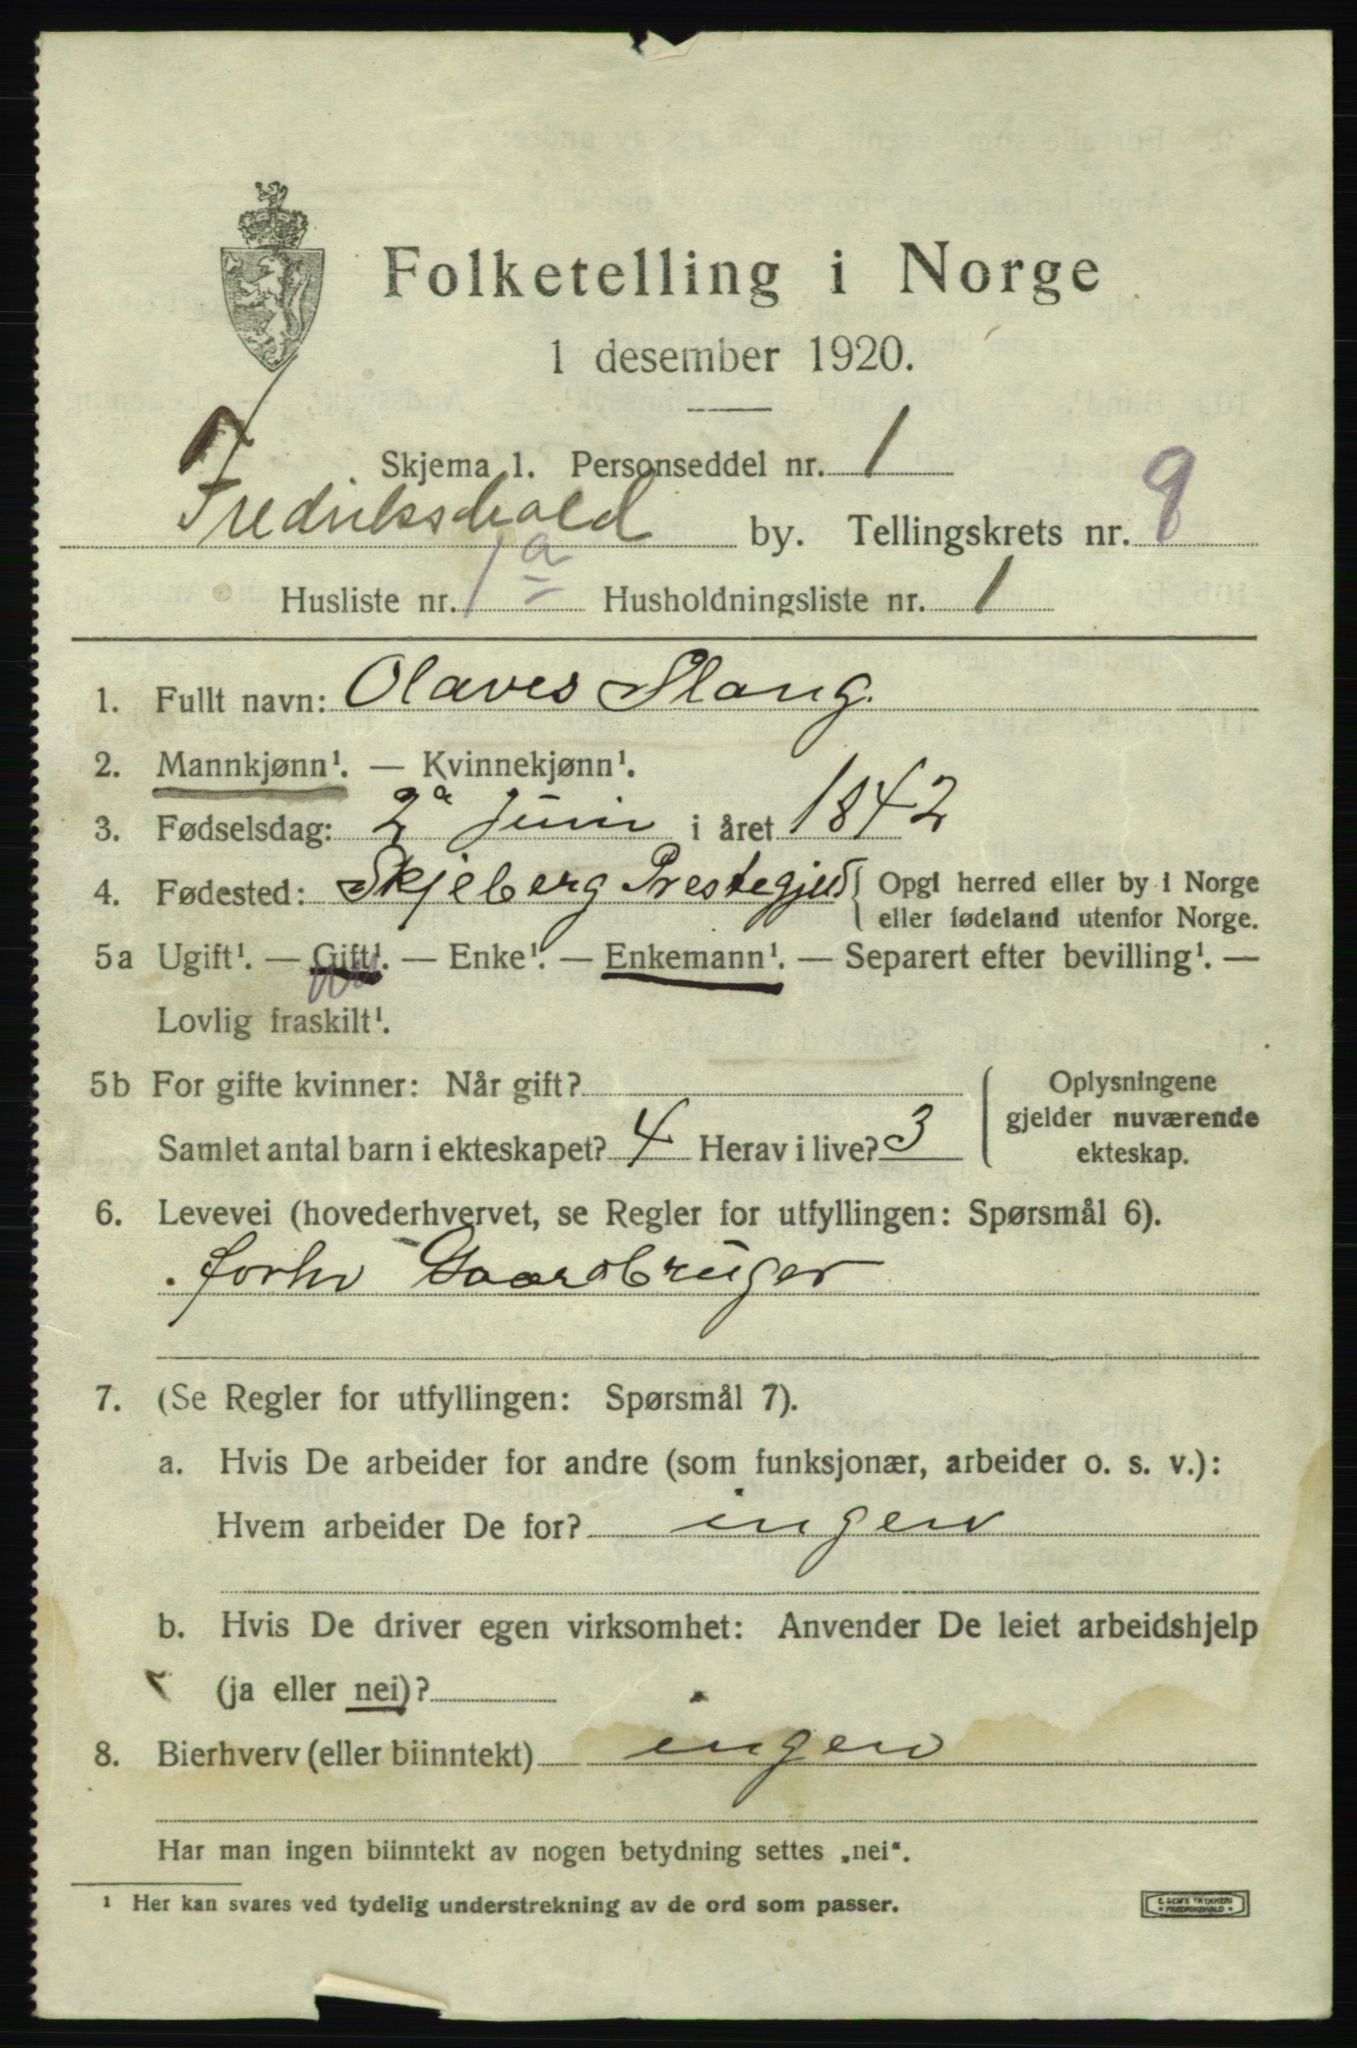 Folketelling i Norge
1 desember 1920.
Skjema 1. Personseddel nr. 1
Fredrikshald by. Tellingskrets nr. 9
Husliste nr. 1 a Husholdningsliste nr. 1
1. Fullt navn: Olaves Stang.
2. Mannkjønn¹. — Kvinnekjønn¹.
3. Fødselsdag: 2ª Juni i året 1842
4. Fødested: Skjeberg Prestegjeld { Opgi herred eller by i Norge
eller fødeland utenfor Norge.
5a Ugift¹. — Gift¹. — Enke¹. — Enkemann¹. — Separert efter bevilling¹. —
Lovlig fraskilt¹.
5b For gifte kvinner: Når gift? { Oplysningene
gjelder nuværende
ekteskap.
Samlet antal barn i ekteskapet? 4 Herav i live? 3
6. Levevei (hovederhvervet, se Regler for utfyllingen: Spørsmål 6).
forhv Gaardbrüger
7. (Se Regler for utfyllingen: Spørsmål 7).
a. Hvis De arbeider for andre (som funksjonær, arbeider o. s. v.):
Hvem arbeider De for? ingen
b. Hvis De driver egen virksomhet: Anvender De leiet arbeidshjelp
(ja eller nei)?
8. Bierhverv (eller biinntekt) ingen
Har man ingen biinntekt av nogen betydning settes „nei“.
¹ Her kan svares ved tydelig understrekning av de ord som passer.
E. SEM'S TRYKKERI
FREDRIKSHALD